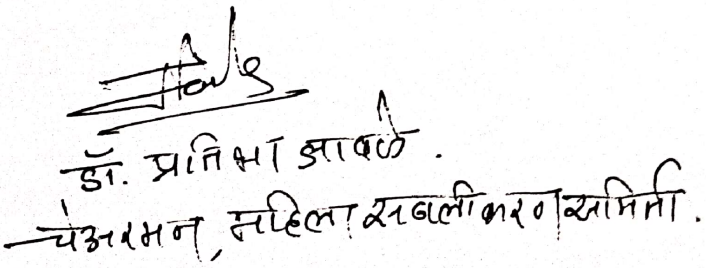 डॉ. प्रतिभा आवळे.
चेअरमन, महिला सबलीकरण समिती.